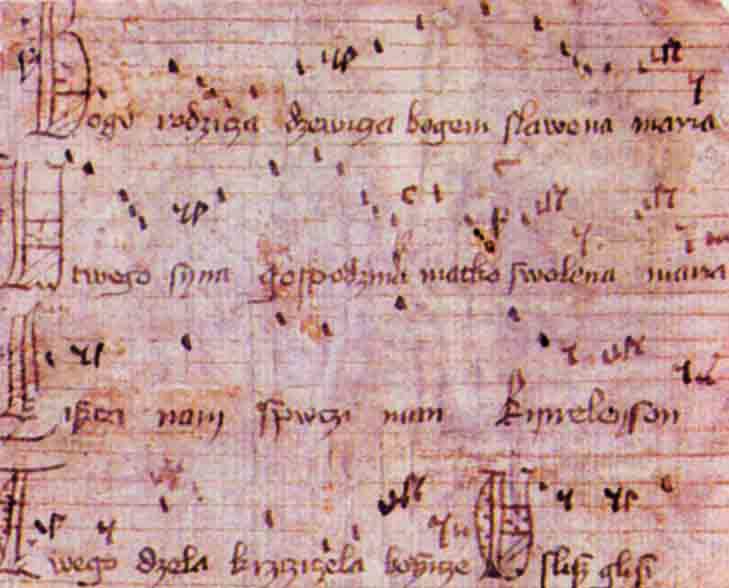 Bogu rodzicza dzewicza bogem slawena maria
U twego syna gospodzina matko swolena maria
Sziszczi nam spwczi nam Kyrieleyson
Twego dzela krzcziczela bozicze Uslisz glisi